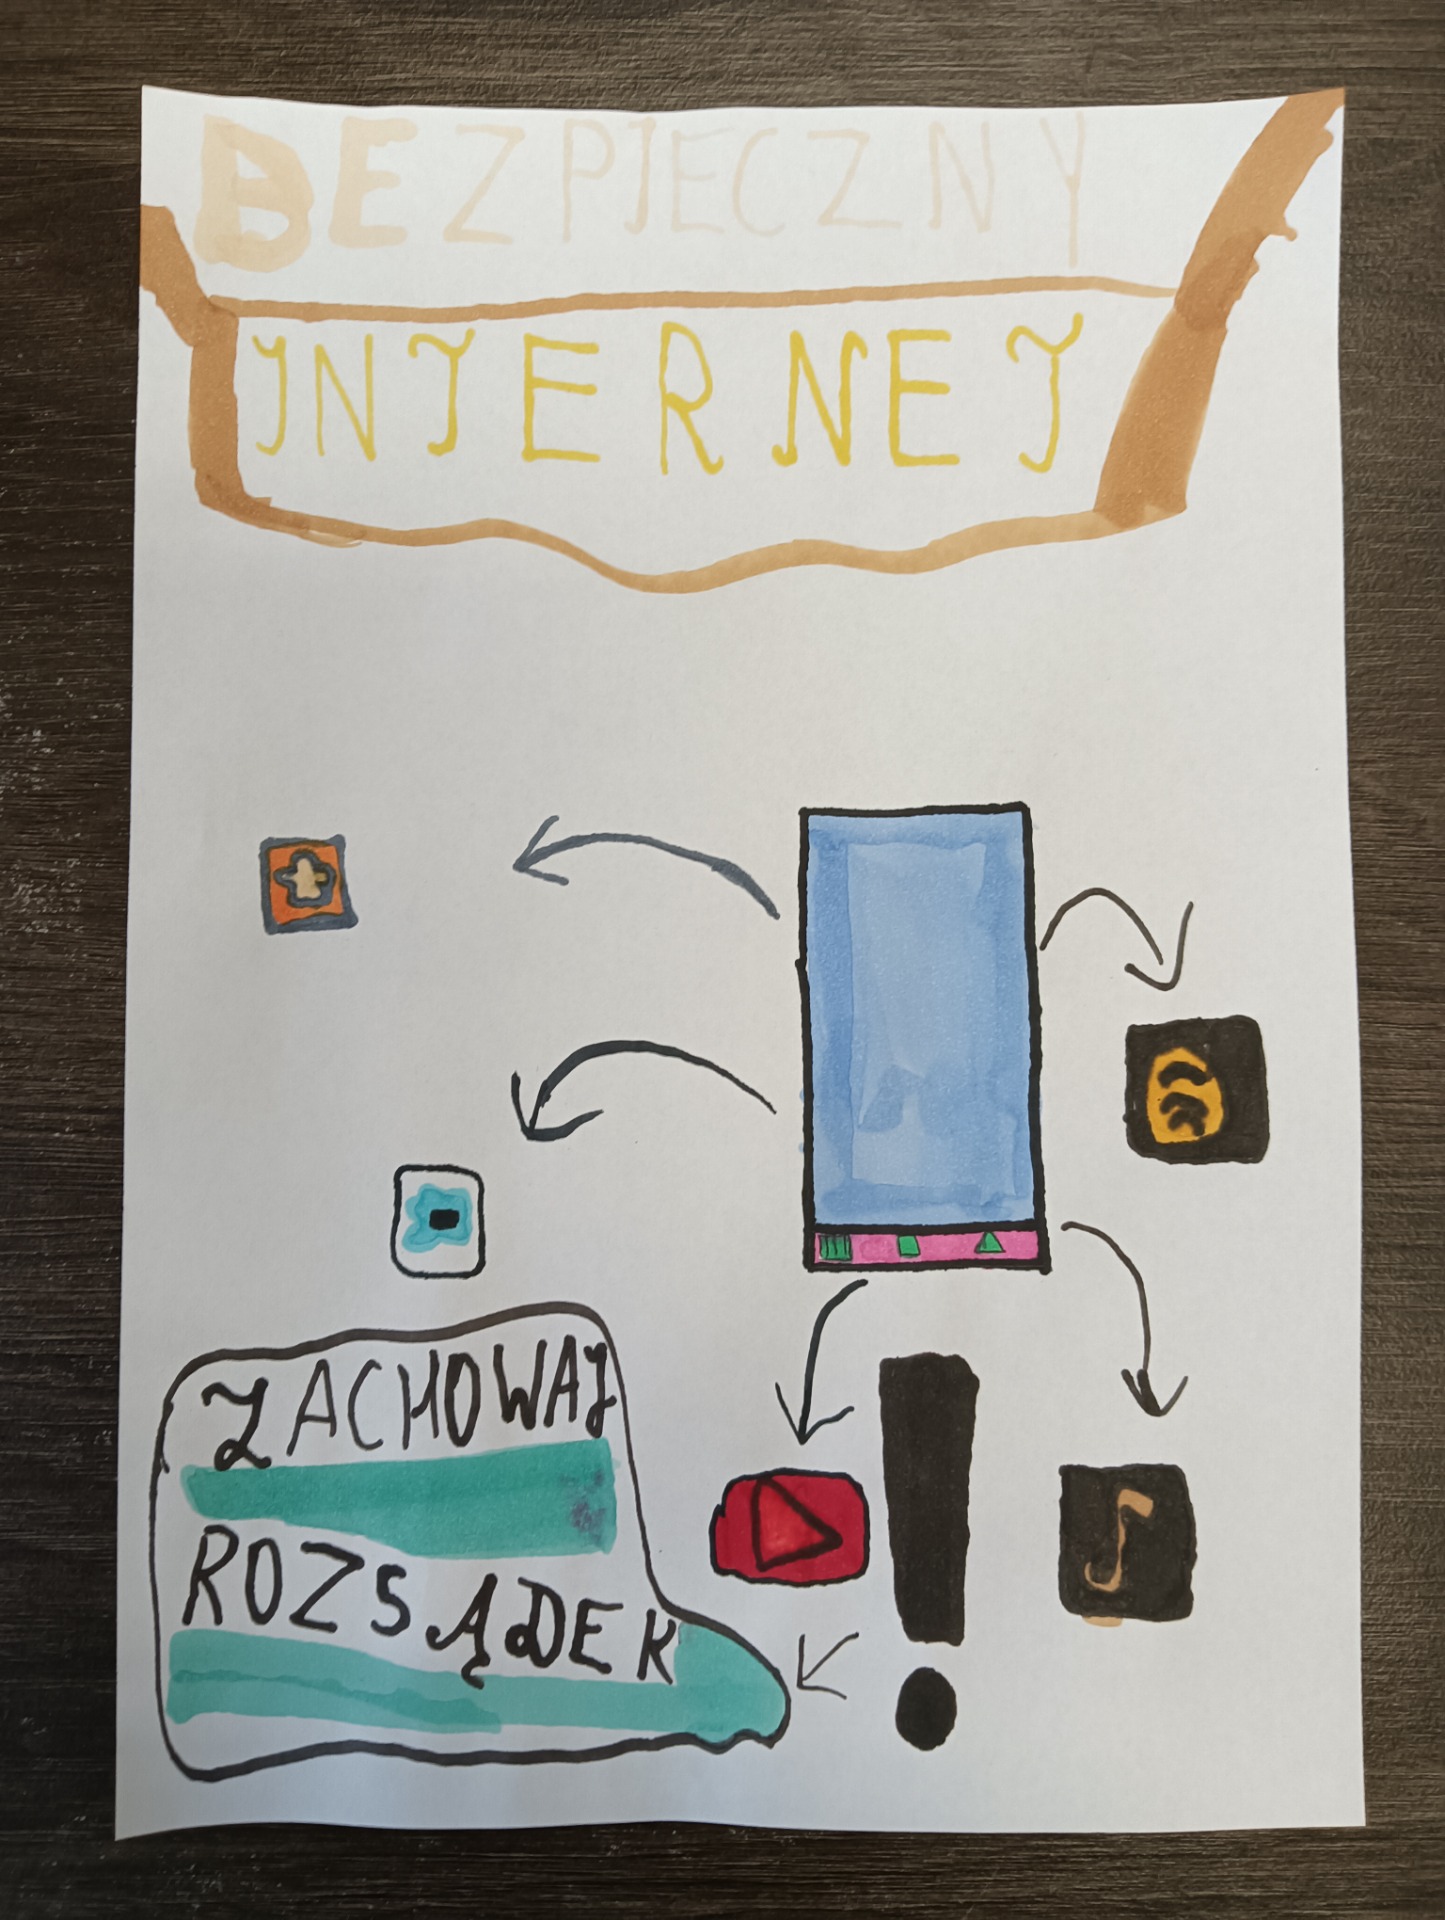 BEZPIECZNY
INTERNET
ZACHOWAJ
ROZSĄDEK